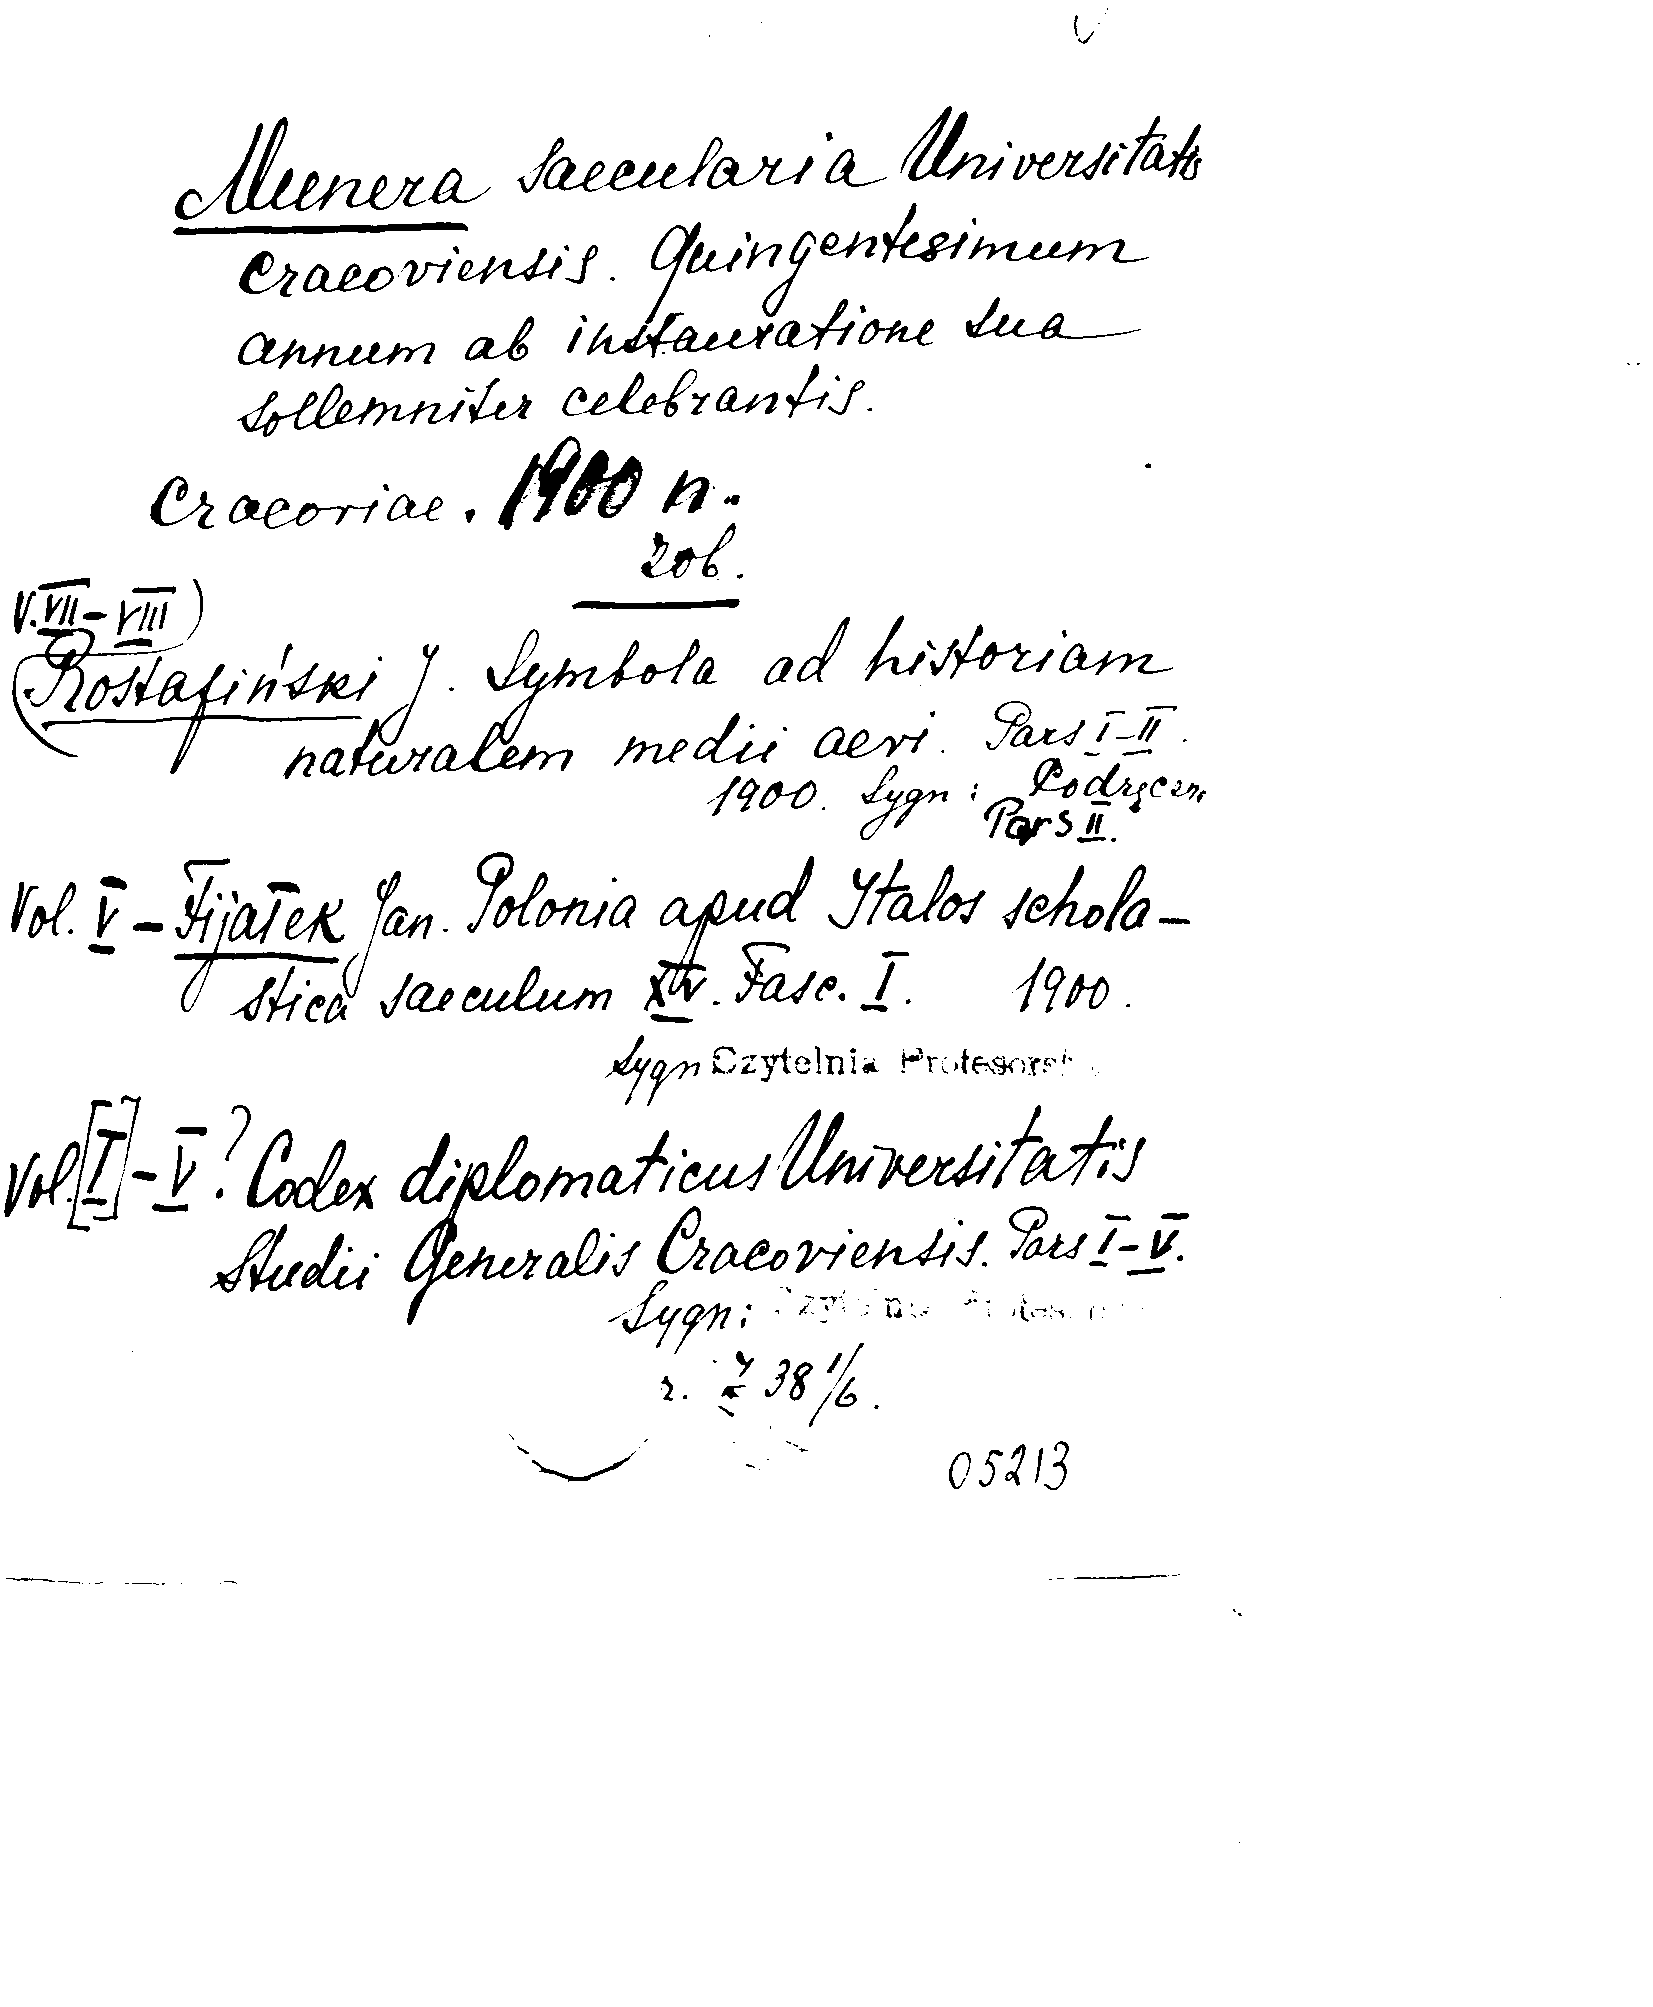 Munera saecularia Universitatis
Cracoviensis. Quingentesimum
annum ab instauratione sua
sollemniter celebrantis.
Cracoviae. 1900 n.
zob.
V. VII-VIII)
Rostafiński J. Symbola ad historiam
naturalem medii aevi. Pars I-II.
1900. Sygn: Podręczn
Pars II.
Vol. V - Fijałek Jan. Polonia apud Italos schola-
stica saeculum XV. Fasc. I. 1900.
Sygn Czytelnia Profesorsk
Vol. [I] - V? Codex diplomaticus Universitatis
Studii Generalis Cracoviensis. Pars I-V.
Sygn: Czytelnia
r. 38 1/6.
05213